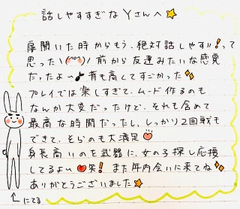 話しやすすぎなYさんへ
扉開いた時からもう、絶対話しやす!!って
思った! 前から友達みたいな感覚
だったよ〜 背も高くてすごかった
プレイでは楽しすぎて、ムード作るのも
なんか大変だったけど、それも含めて
最高な時間だったし、しっかり2回戦も
できて、そらのも大満足
身長高いのを武器に、女の子探し応援
してるよ 笑! また年内会いに来てね
ありがとうございました
↑にてる